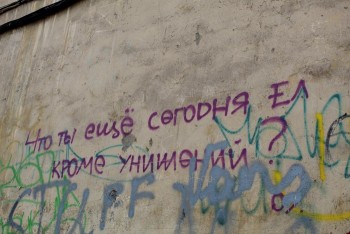 Что ты ещё сегодня ел
кроме унижений?